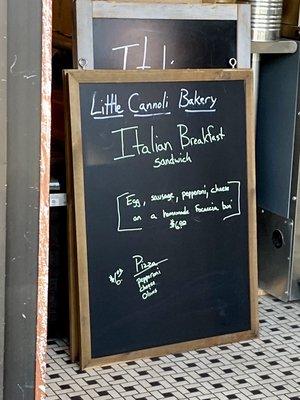 Ital
Little Cannoli Bakery
Italian Breakfast
Sandwich
Egg, sausage, pepperoni, cheese
on a homemade Focaccia bun
Pizza
Pepperoni
Cheese
Olives